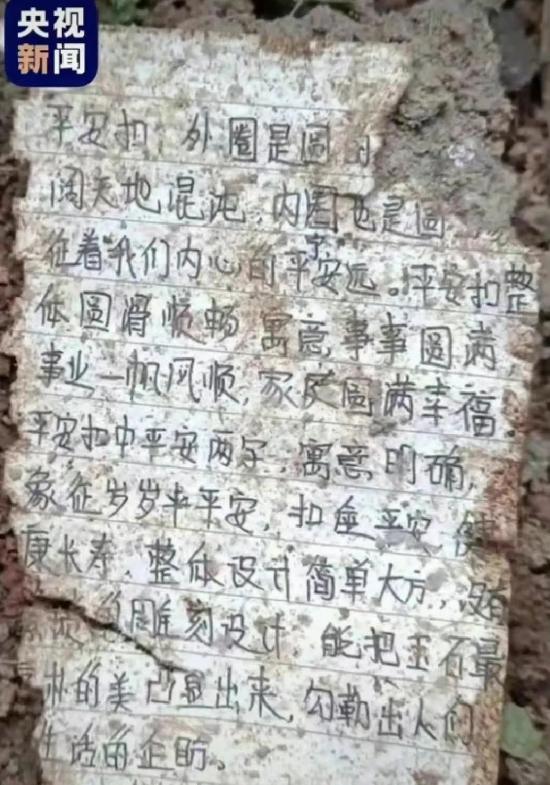 央视
新闻
平安扣 外圈是圆
阔天地混沌 内圈也是圆
征着我们内心的平宁安远。平安扣整
体圆滑顺畅 寓意事事圆满,
事业一帆风顺,家庭圆满幸福。
平安扣中平安两字,寓意明确,
象征岁岁平安,扣平安 健
康长寿,整体设计简单大方,没有
雕刻设计 能把玉石最
朴的美凸显出来,勾勒出人们
生活的企盼。